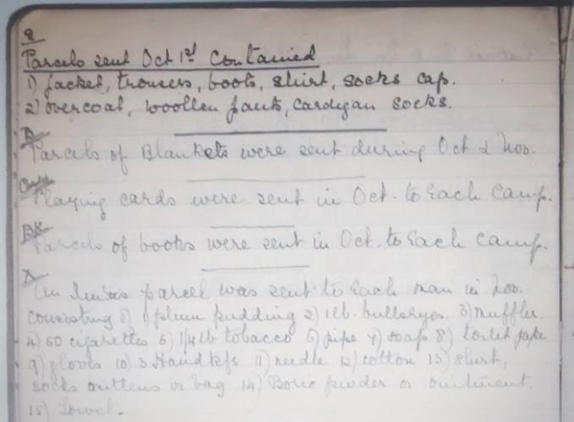 Parcels sent Oct 1st Contained
1) Jacket, trousers, boots, shirt, socks cap.
2) Overcoat, woollen pants, cardigan socks.
Parcels of Blankets were sent during Oct & Nov.
Playing cards were sent in Oct. to Each Camp.
BK
Parcels of books were sent in Oct. to Each Camp.
An Xmas parcel was sent to Each man in Nov.
consisting of 1 plum pudding 2) 1 lb. bullseyes. 3) muffler
4) 50 cigarettes 5) 1/4 lb tobacco 6) pipe 7) soap 8) toilet paper
9) gloves 10) 3 Handkfs 11) needle 12) cotton 13) shirt,
socks mittens or bag 14) Boric powder or ointment.
15) Towel.